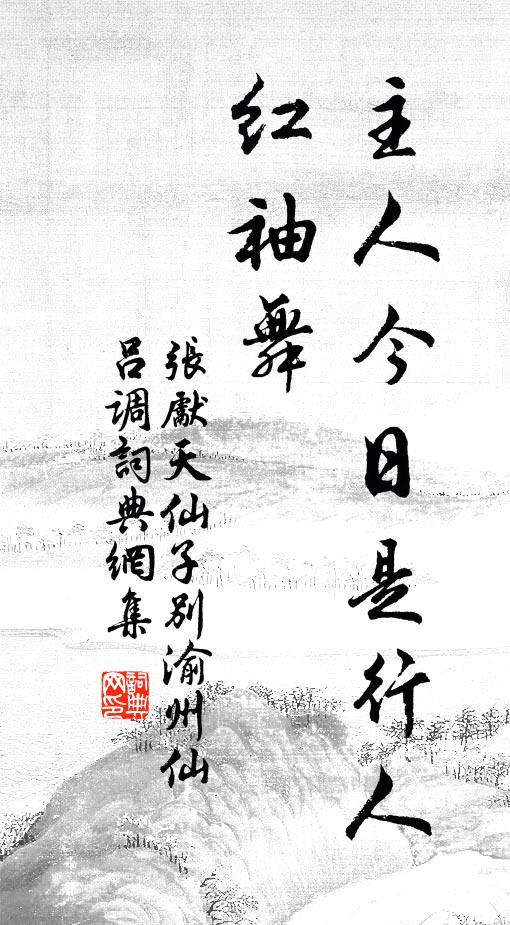 主人今日是行人
红袖舞
張獻天仙子别渝州仙
吕调詞典網集
詞典网印